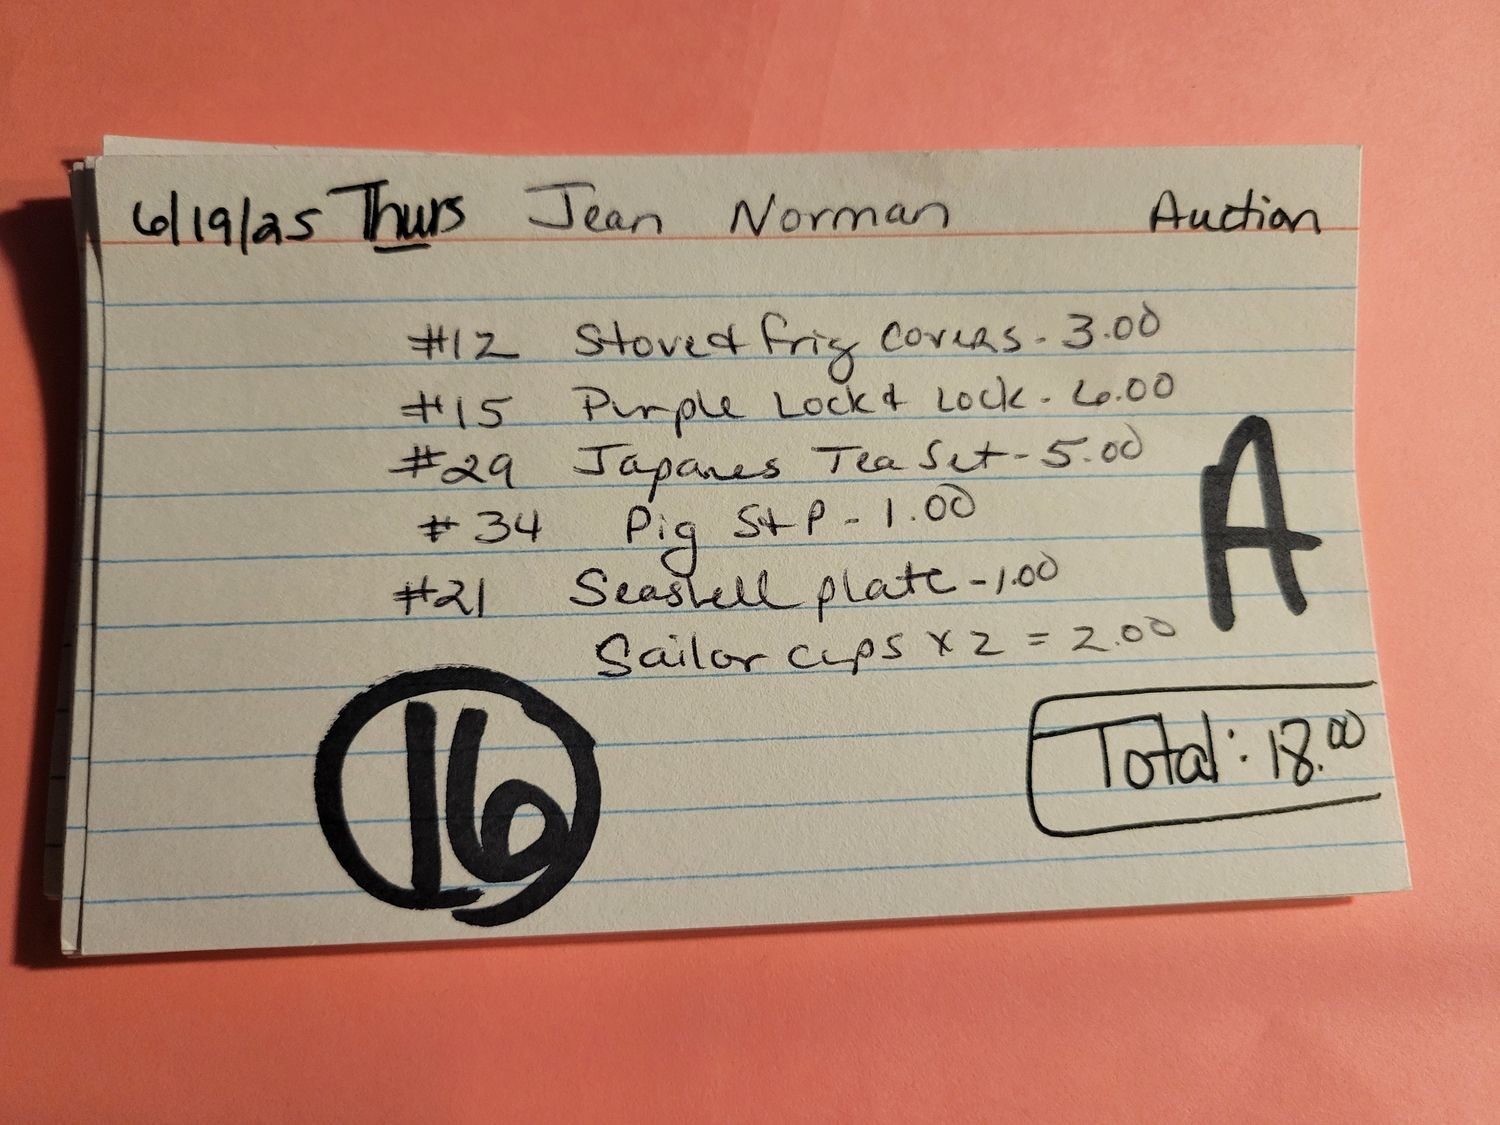 6/19/25 Thurs Jean Norman Auction
#12 Stove & frig covers - 3.00
#15 Purple Lock & Lock - 6.00
#29 Japanes Tea Set - 5.00
#34 Pig S & P - 1.00
#21 Seashell plate - 1.00
Sailor cups x 2 = 2.00
A
Total: 18.00
16